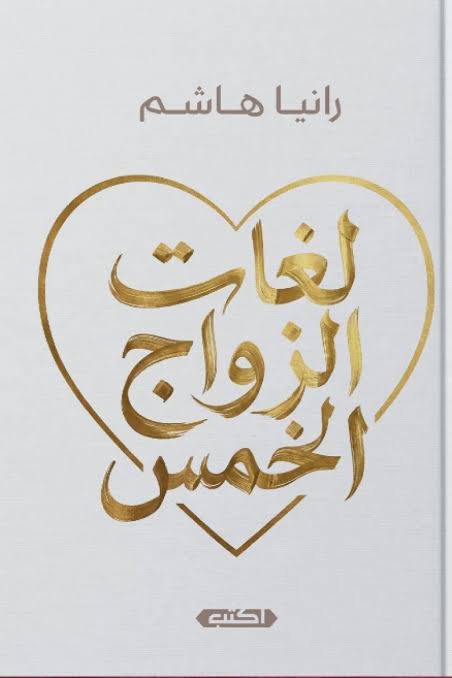 رانيا هاشم
لغات
الزواج
الخمس
اكتب